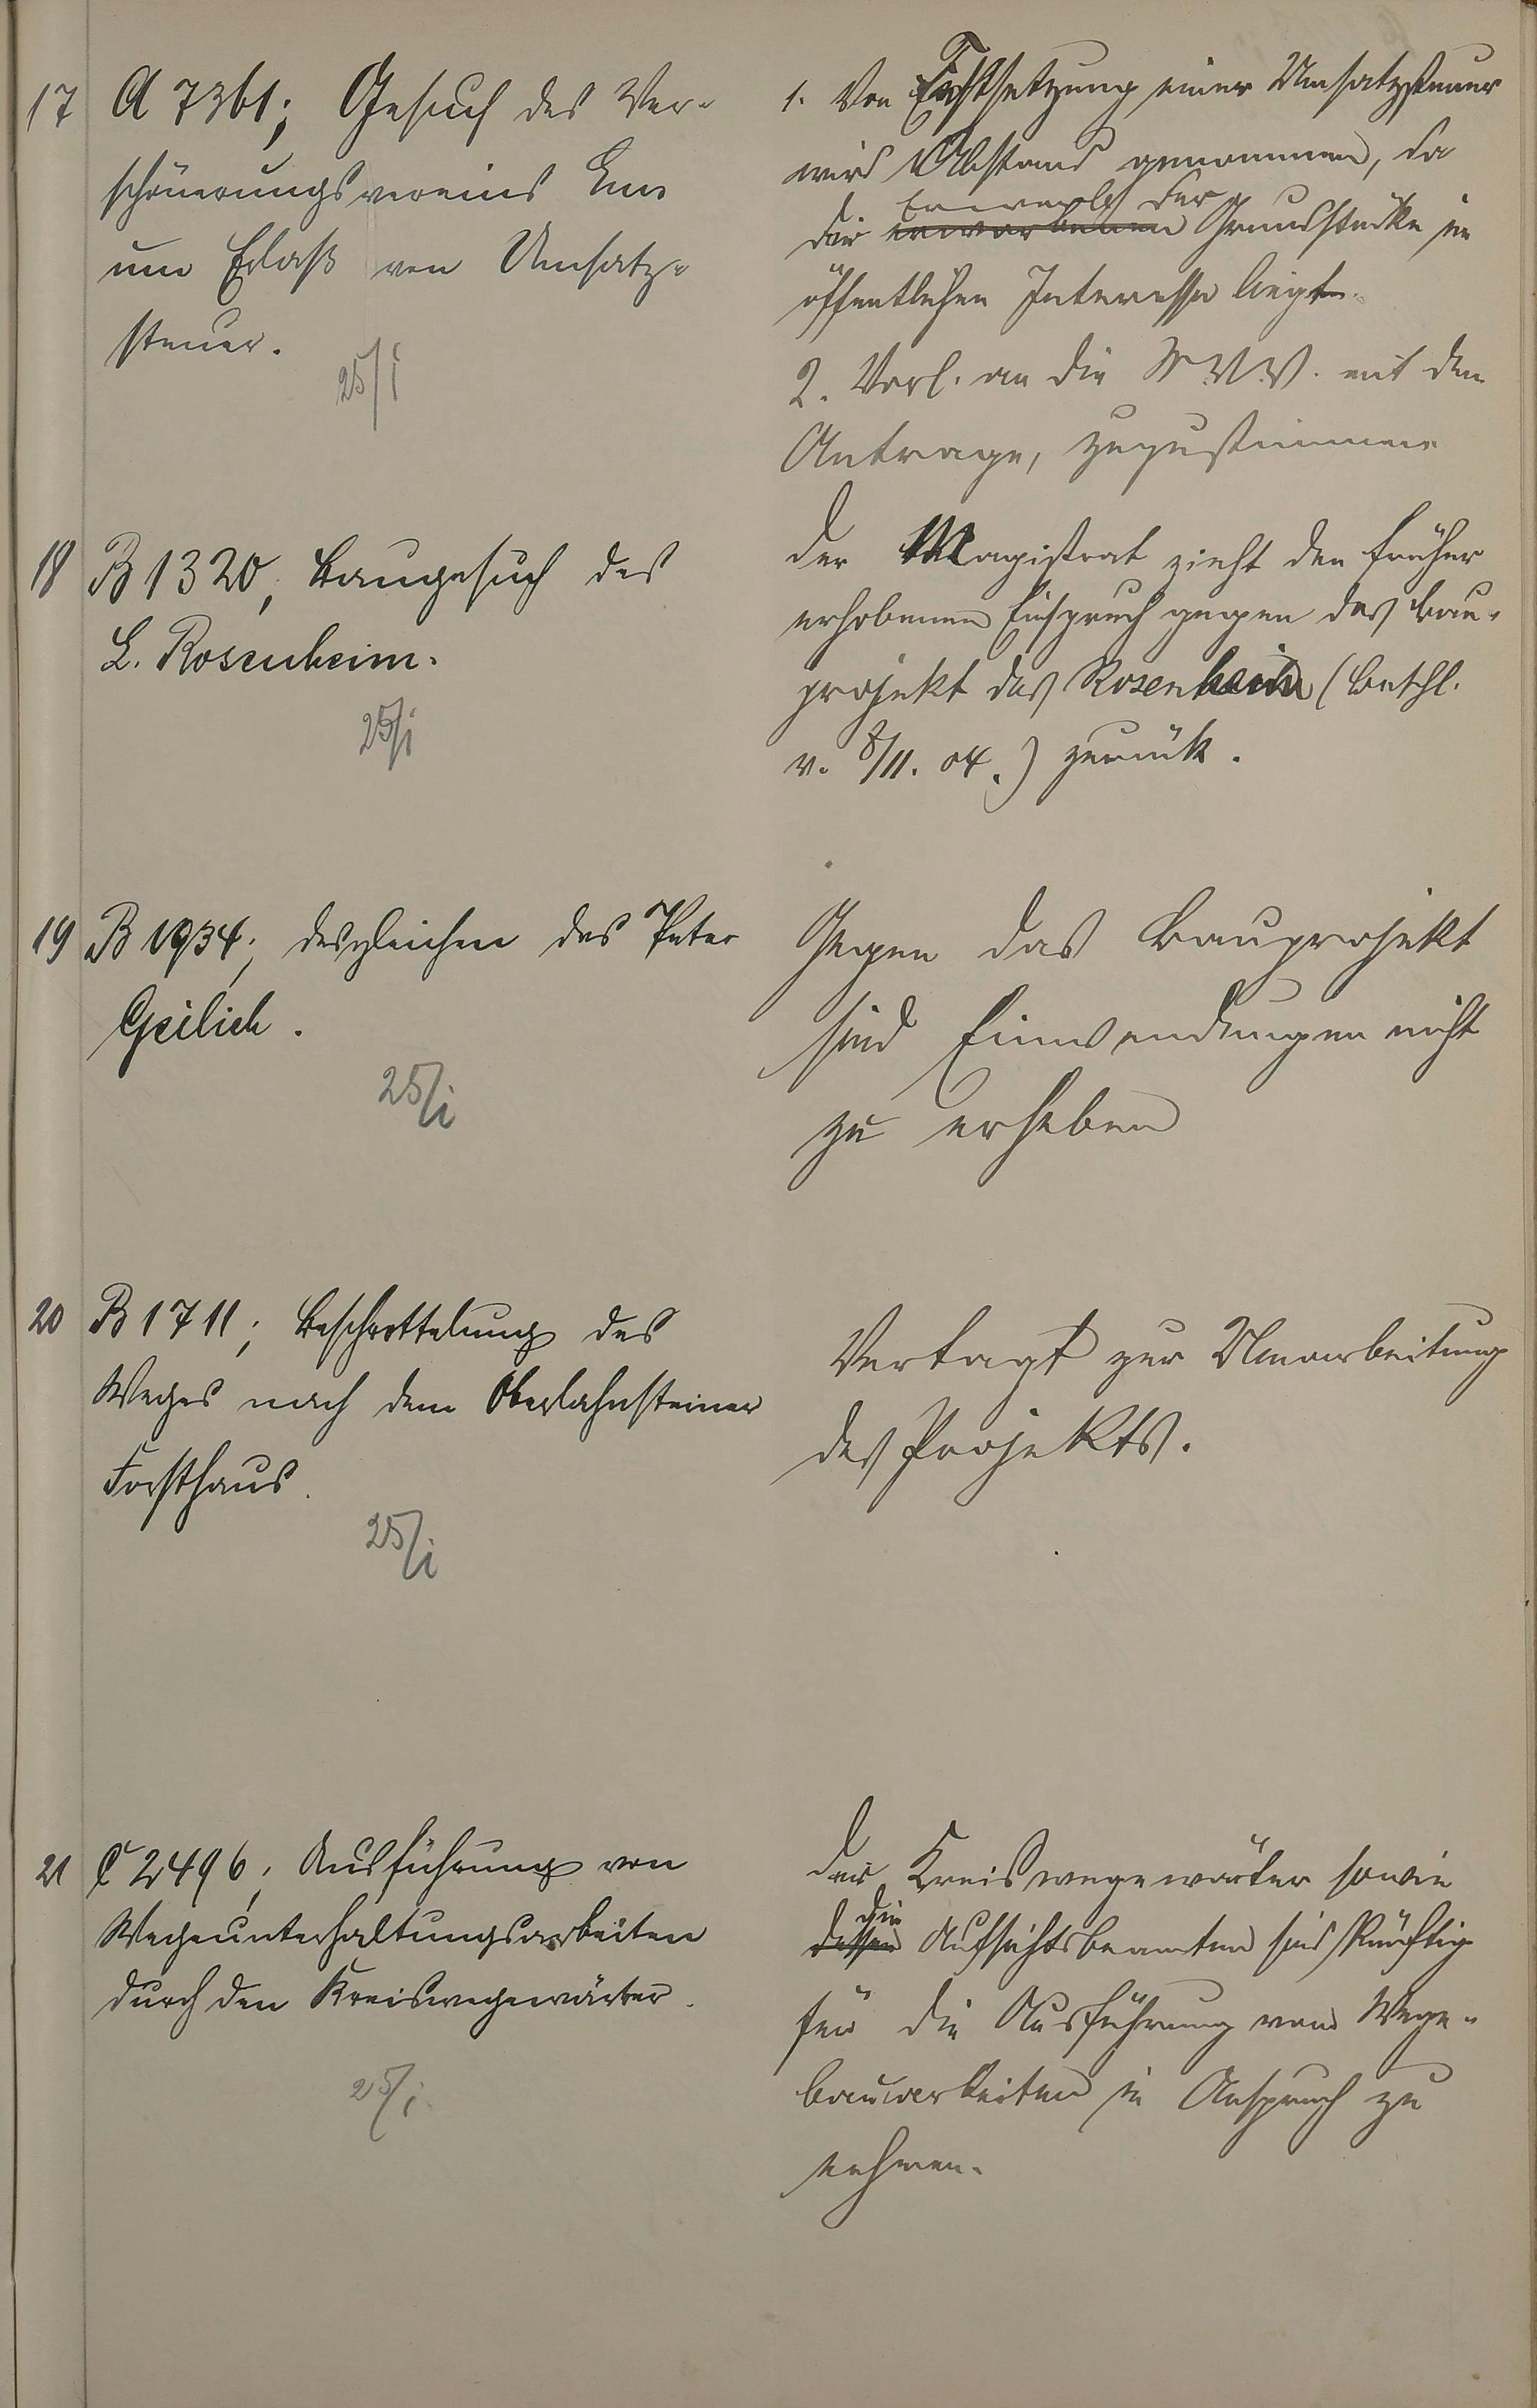 17 A 7361; Gesuch des Ver-
schönerungsvereins Ems
um Erlaß von Umsatz-
steuer.
25/I
1. Von Festsetzung einer Umsatzsteuer
wird Abstand genommen, da
Erwerb der
die erworbenen Grundstücke im
öffentlichen Interesse liegt.
2. Vorl. an die St.V.V. mit dem
Antrage, zuzustimmen
18 B 1320; Baugesuch des
L. Rosenheim.
25/I
Der Magistrat zieht den früher
erhobenen Einspruch gegen das Bau-
projekt des Rosenheim (Beschl.
v. 8/11. 04.) zurück.
19 B 1934; desgleichen des Peter
Geilich.
25/I
Gegen das Bauprojekt
sind Einwendungen nicht
zu erheben
20 B 1711; Beschotterung des
Weges nach dem Oberlahnsteiner
Forsthaus.
25/I
Vertagt zur Umarbeitung
des Projekts.
21 C 2496; Ausführung von
Wegeunterhaltungsarbeiten
durch den Kreiswegewärter.
25/I
Der Kreiswegewärter sowie
die
dessen Aufsichtsbeamten sind künftig
für die Ausführung von Wege-
bauarbeiten in Anspruch zu
nehmen.